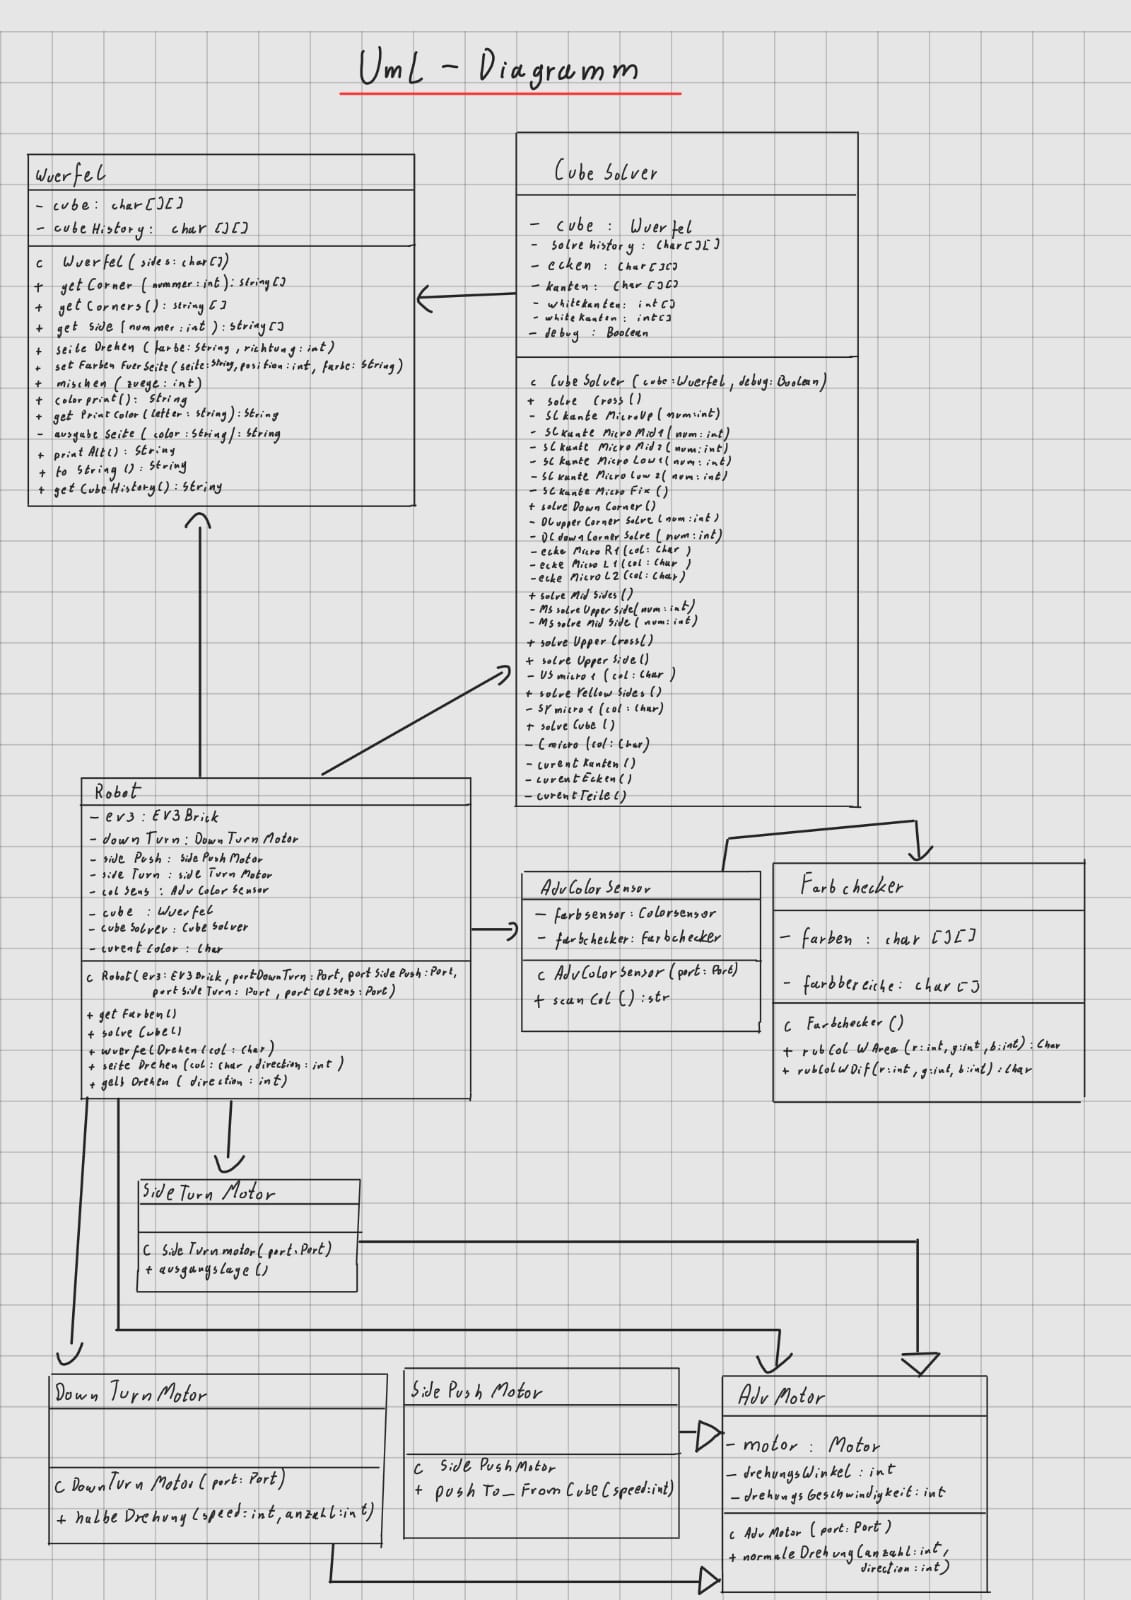 UmL - Diagramm
Wuerfel
- cube: char [][]
- cubeHistory: char [][]
c Wuerfel ( sides: char[])
+ get Corner ( nummer: int): String[]
+ get Corners(): String []
+ get Side (nummer: int ): String[]
+ seite Drehen ( farbe: String, richtung: int)
+ set Farben FuerSeite( seite: String, position: int, farbe: String)
+ mischen ( zuege: int)
+ color print(): String
+ get Print Color ( letter: String): String
- ausgabe Seite ( color: String): String
+ print Alt(): String
+ to String (): String
+ get Cube History(): String
Cube Solver
- cube : Wuerfel
- solve history : Char[][]
- ecken : Char[][]
- kanten : Char [][]
- whitekanten: int[]
- white Kanten: int[]
- debug : Boolean
c Cube Solver ( cube: Wuerfel, debug: Boolean)
+ solve Cross ()
- SC kante MicroUp ( num: int)
- SC kante Micro Mid1 ( num: int)
- SC kante Micro Mid2 ( num: int)
- SC kante Micro Low1( num: int)
- SC kante Micro Low 2( num: int)
- SC kante Micro Fix ()
+ solve Down Corner()
- DC upper Corner Solve ( num: int)
- DC down Corner Solve ( num: int)
- ecke Micro R1 (col: Char )
- ecke Micro L1 (col: Char )
- ecke Micro L2 (col: Char)
+ solve Mid Sides ()
- MS solve Upper Side( num: int)
- MS solve Mid Side ( num: int)
+ solve Upper Cross()
+ solve Upper Side ()
- US micro 1 ( col: Char )
+ solve Yellow Sides ()
- SY micro 1 (col: Char)
+ solve Cube ()
- C micro (col: Char)
- curent Kanten ()
- curent Ecken()
- curent Teile()
Robot
- ev3 : EV3 Brick
- down Turn : Down Turn Motor
- side Push : side Push Motor
- side Turn : side Turn Motor
- col Sens : Adv Color Sensor
- cube : Wuerfel
- cube Solver : Cube Solver
- curent Color : Char
c Robot ( ev3: EV3 Brick, port Down Turn: Port, port Side Push: Port,
port Side Turn: Port, port Col Sens: Port)
+ get Farben()
+ solve Cube()
+ wuerfel Drehen (col : Char)
+ seite Drehen (col: Char, direction: int )
+ gelb Drehen ( direction : int)
AdvColorSensor
- farbsensor: Colorsensor
- farbchecker: Farbchecker
c AdvColorSensor (port: Port)
+ scan Col () : str
Farbchecker
- farben : char [][]
- farbbereiche: char []
c Farbchecker ()
+ rubCol W Area (r: int, g: int, b: int) : Char
+ rubCol W Dif (r: int, g: int, b: int) : Char
Side Turn Motor
C Side Turn motor( port: Port)
+ ausgangslage ()
Down Turn Motor
C Down Turn Motor ( port: Port)
+ halbe Drehung (speed: int, anzahl: int)
Side Push Motor
C Side Push Motor
+ push To_ From Cube (speed: int)
Adv Motor
- motor : Motor
- drehungsWinkel : int
- drehungs Geschwindigkeit: int
c Adv Motor ( port: Port )
+ normale Drehung (anzahl: int,
direction: int)